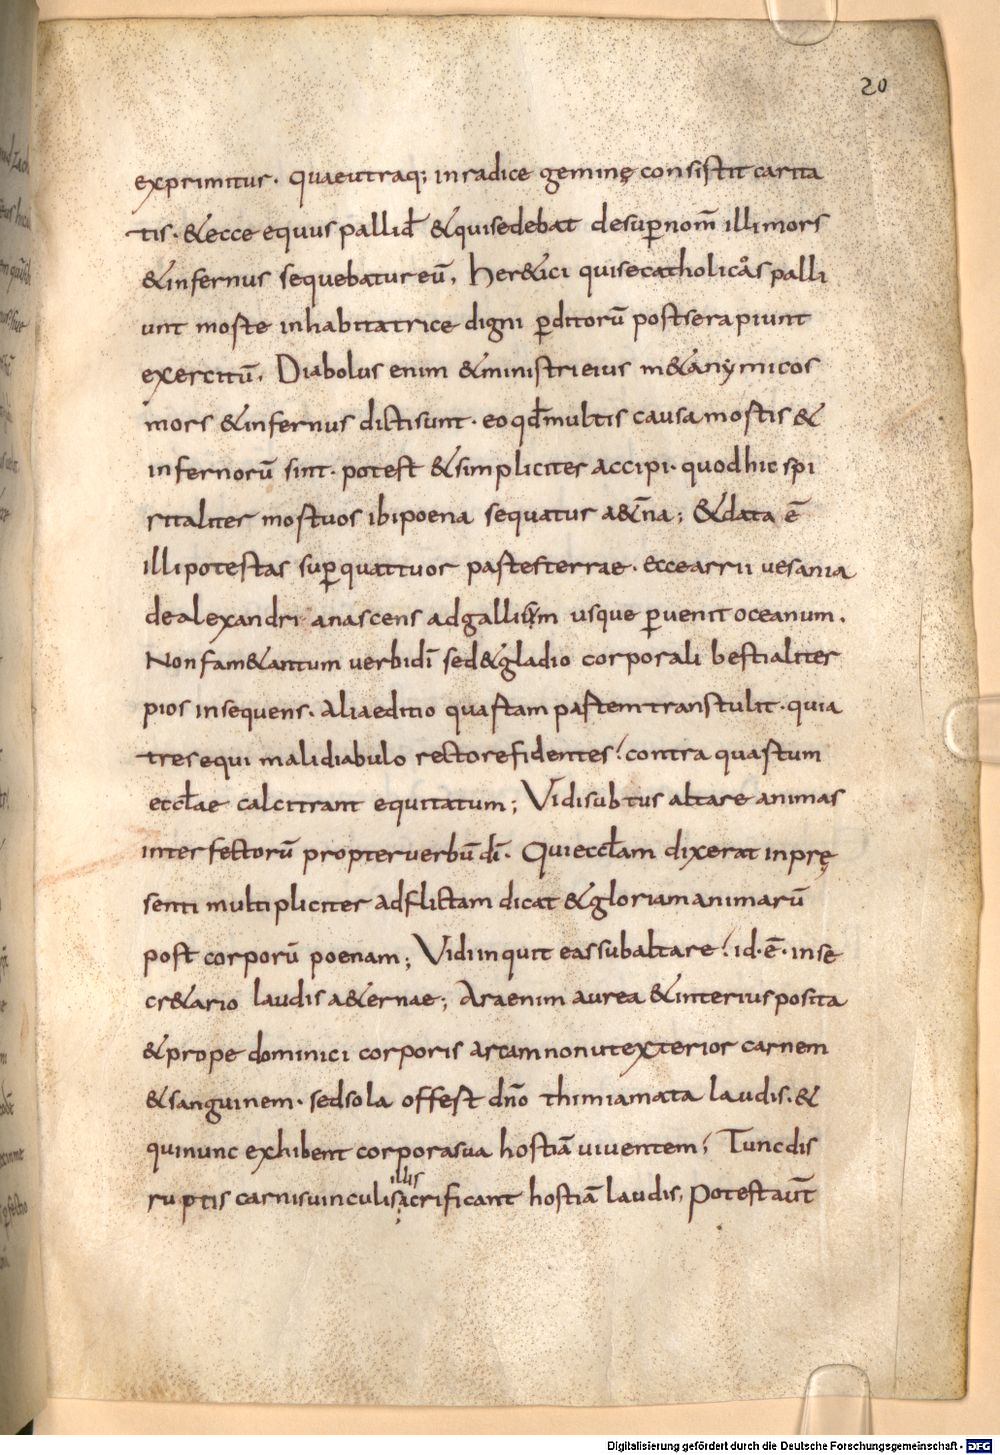 20
exprimitur. quaeutraq; inradice geminę consistit carita
tis. &ecce equus pallid' &quisedebat desup nom̄ illi mors
&infernus sequebatur eū, her&ici quisecatholicos palli
unt morte inhabitatrice digni pditorū postserapiunt
exercitū, Diabolus enim &ministrieius m&anymicos
mors &infernus dictisunt. eo qd multis causa mortis &
infernorū sint. potest &simpliciter accipi. quodhic spi
ritaliter mortuos ibipoena sequatur a&̄na; &data ē
illi potestas sup quattuor partesterrae. eccearrii uesania
dealexandri anascens adgallicym usque puenit oceanum.
Non fam&antum uerbidī sed&gladio corporali bestialiter
pios insequens. aliaeditio quartam partem transtulit. quia
tresequi malidiabulo rectorefidentes! contra quartum
ecclae calcitrant equitatum; Vidisubtus altare animas
interfectorū propteruerbūdī. Quiecclam dixerat inprę
senti multipliciter adflictam dicat &gloriamanimarū
post corporū poenam; Vidiinquit eassubaltare! id.ē.inse
cr&ario laudis a&ernae; Araenim aurea &interiusposita
&prope dominici corporis arcamnonutexterior carnem
&sanguinem. sedsola offert dn̄o thimiamata laudis. &
quinunc exhibent corporasua hostiā uiuentem! Tuncdis
illis
ruptis carnisuinculis acrificant hostiā laudis, Potestaūt
Digitalisierung gefördert durch die Deutsche Forschungsgemeinschaft - DFG